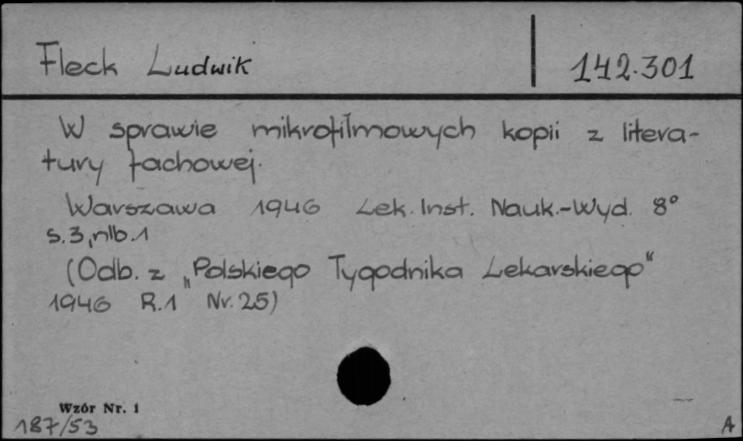 Fleck Ludwik
142.301
W sprawie mikrofilmowych kopii z litera-
tury fachowej.
Warszawa 1946 Lek. Inst. Nauk.-Wyd. 8°
s.3, nlb.1
(Odb. z „Polskiego Tygodnika Lekarskiego“
1946 R.1 Nr. 25)
Wzór Nr. 1
187/53
A